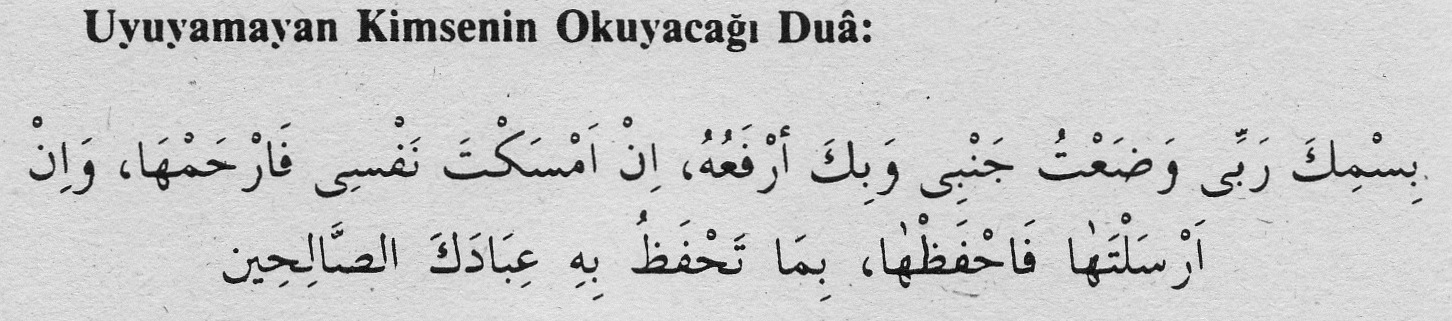 Uyuyamayan Kimsenin Okuyacağı Duâ:
بِسْمِكَ رَبِّى وَضَعْتُ جَنْبِى وَبِكَ أَرْفَعُهُ، اِنْ اَمْسَكْتَ نَفْسِى فَارْحَمْهَا، وَاِنْ
اَرْسَلْتَهٰا فَاحْفَظْهٰا، بِمَا تَحْفَظُ بِهِ عِبَادَكَ الصَّالِحِين